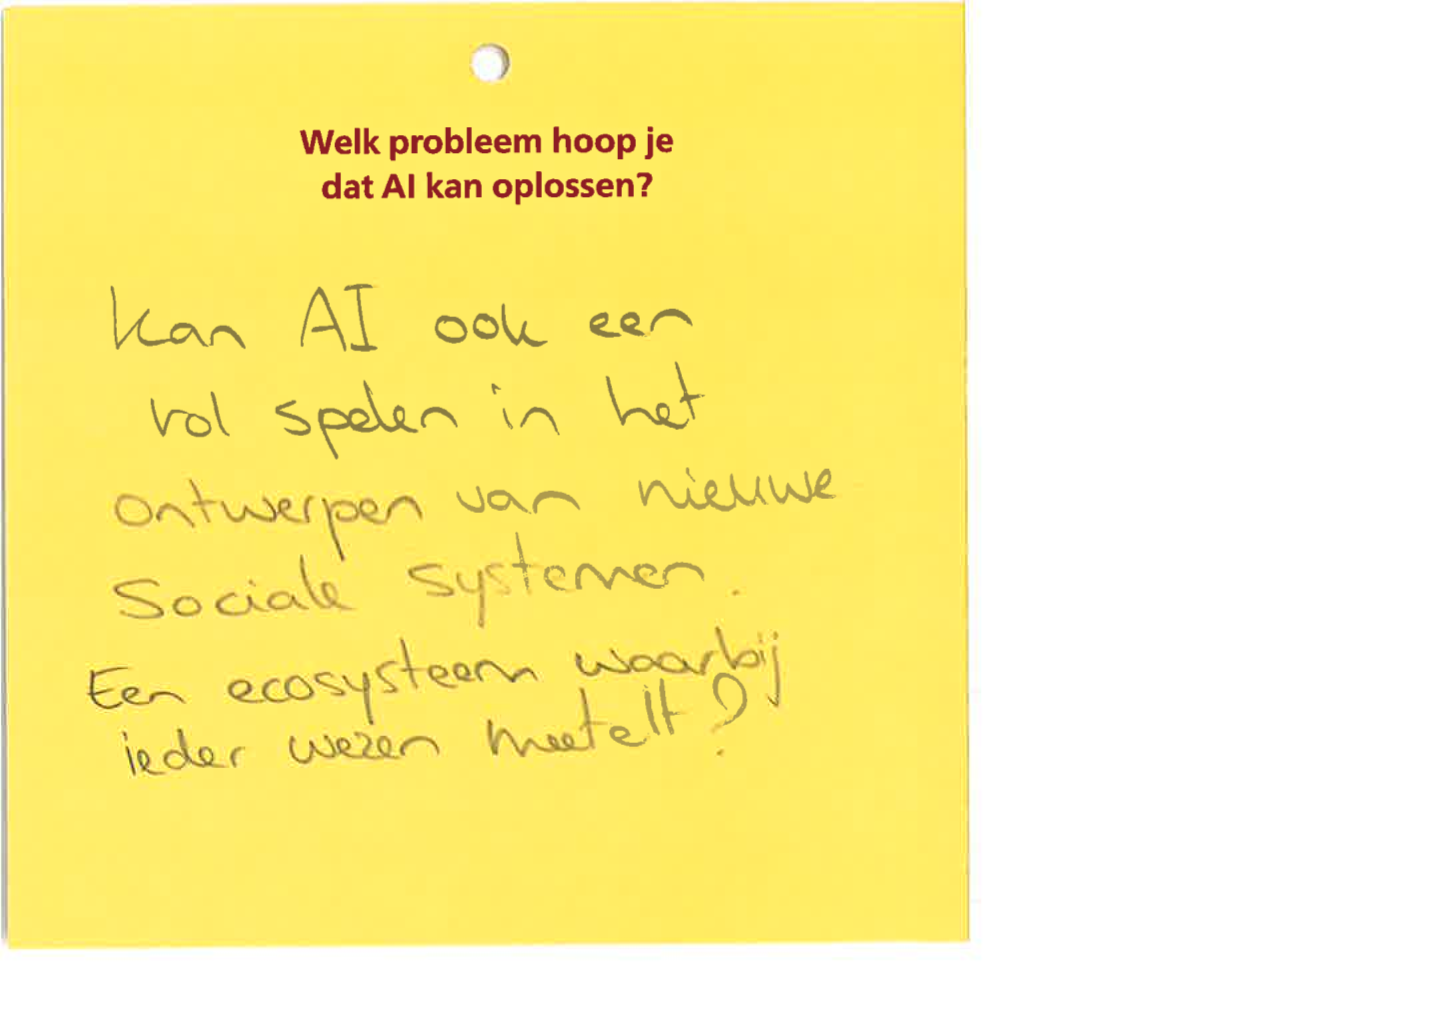 Welk probleem hoop je
dat AI kan oplossen?
Kan AI ook een
rol spelen in het
ontwerpen van nieuwe
Sociale systemen.
Een ecosysteem waarbij
ieder wezen meetelt?